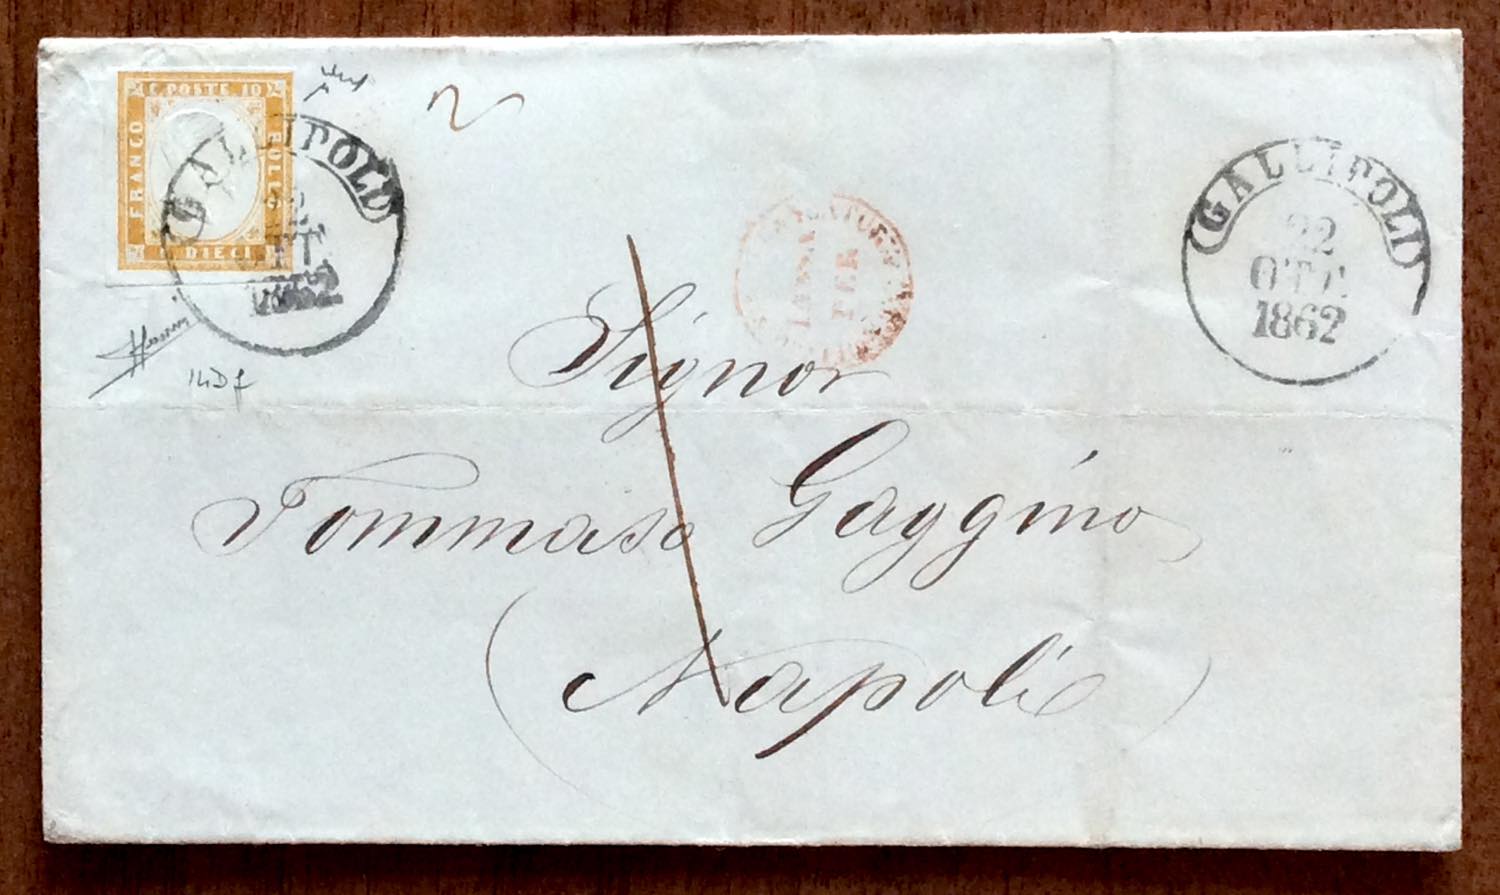 C. POSTE 10
FRANCO
BOLLO
C. DIECI
GALLIPOLI
1862
14Df
GALLIPOLI
22
OTT.
1862
Signor
Tommaso Gaggino
(Napoli)